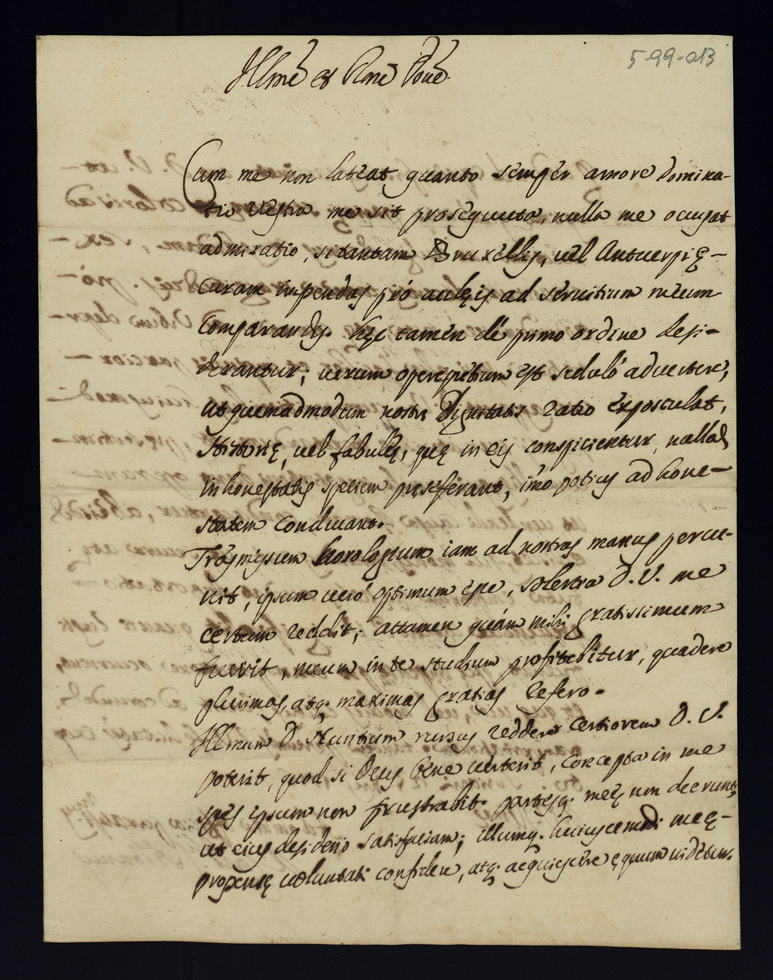 5-99-013
Illme et Rme Dne
Cum me non lateat quanto semper amore domina-
tio Vestra me sit prosequuta, nulla me occupat
admiratio, si tantam Bruxellis, vel Antuerpię
curam impendas pró aulęis ad servitium meum
comparandis. hęc tamén dé primo ordine desi-
derantur; uerum operępretium est seduló aduertere,
ut quemadmodum nostrę dignitatis ratio exposculat,
historię, uel fabulę, quę in eis conspicientur nullā
inhonestatis speciem pręseferant, imó potius ad hone-
statem conducant.
Trāsmissum horologium iam ad nostras manus perue-
nit, ipsum ueró optimum esse, solertia D.V. me
certum reddit; attamen quám mihi gratissimum
fuerit, meum in te studium profitebitur, quadere
plurimas, atq. maximas gratias refero.
Illmum D. Nuntium rursus reddere certiorem D.V.
poterit, quod si Deus bene uerterit, concepta in me
spes ipsum non frustrabit. partesq. meę non deerunt,
ut eius desiderio satisfaciam; illumq. huiuscemodi meę
propensę uoluntati confidere, atq. acquiescere ęquum uidetur.